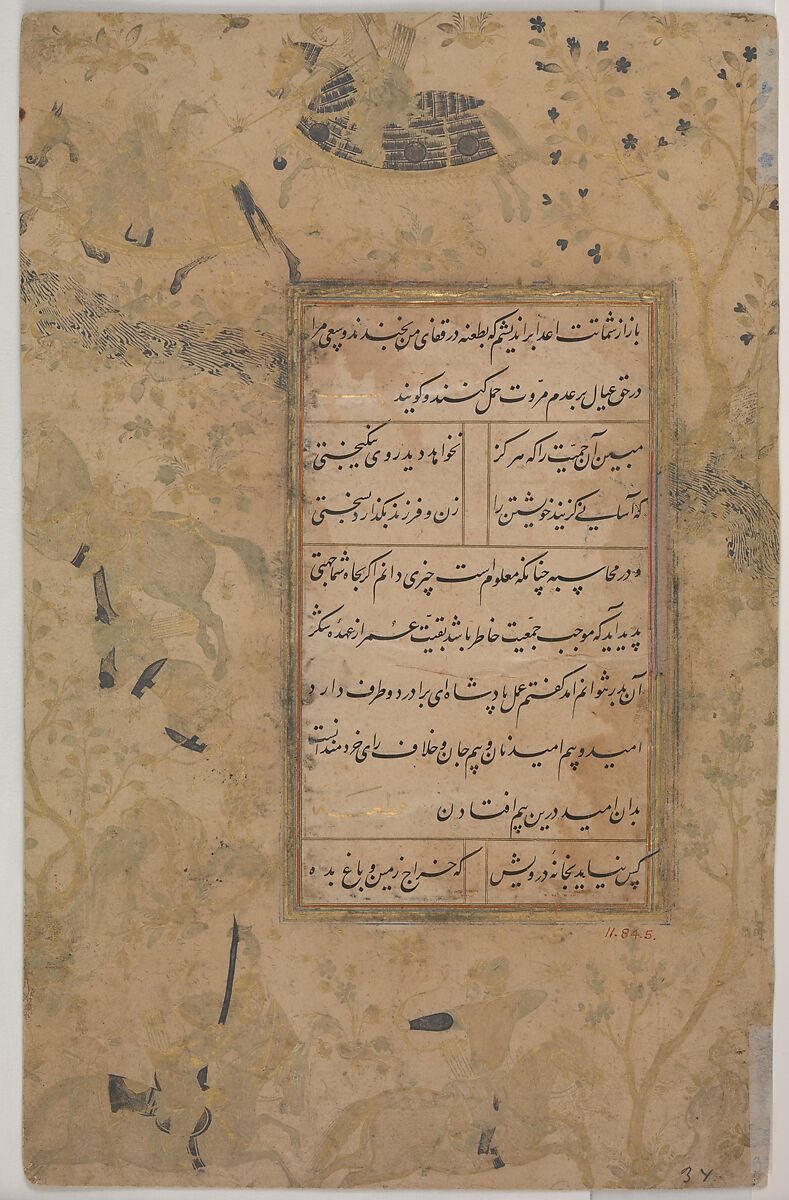 باز از شماتت اعدا بر اندیشم که بطعنه در قفای من بخندند و سعی مرا
در حق عیال بر عدم مروّت حمل کنند و گویند
مبین آن بی حمیّت را که هرگز نخواهد دید روی نیکبختی
که آسانی گزیند خویشتن را زن و فرزند بگذارد بسختی
و در محاسبه چنانکه معلوم است چیزی دانم اگر بجاه شما جهتی
پدید آید که موجب جمعیّت خاطر باشد بقیّت عمر از عهده شکر
آن بدر نتوانم آمد گفتم عمل پادشاه ای برادر دو طرف دارد
امید و بیم امید نان و بیم جان و خلاف رای خردمند انست
بدان امید درین بیم افتادن قطعه
کس نیاید بخانه درویش که خراج زمین و باغ بده
11.84.5.
37